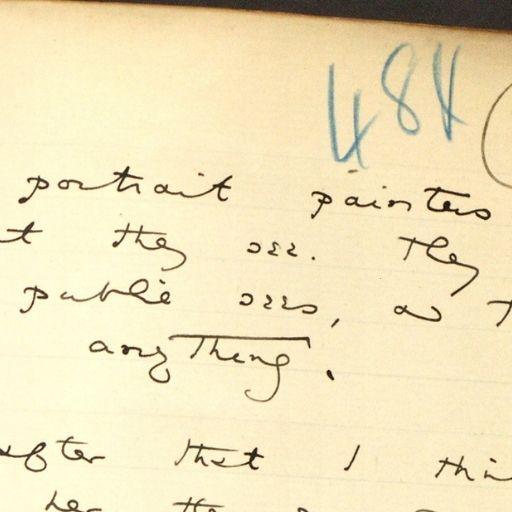 484
portrait painters
t they see. They
public sees, as t
anything.
after that I thi
her the